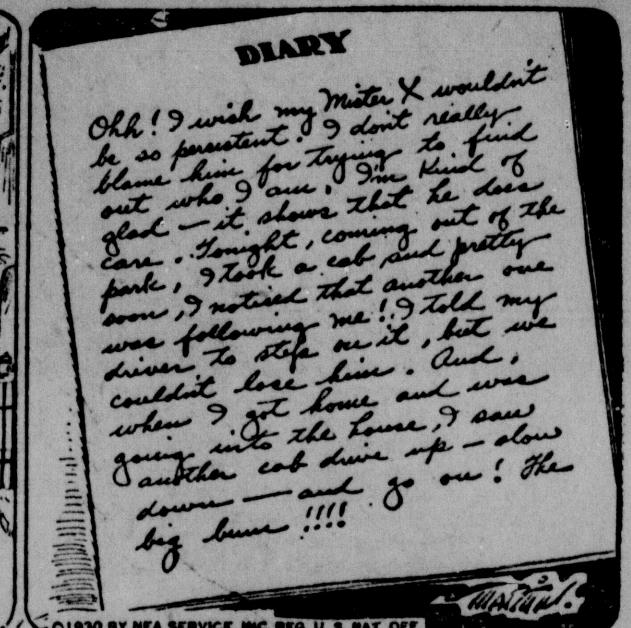 DIARY
Ohh! I wish my Mister X wouldn't
be so persistent. I don't really
blame him for trying to find
out who I am. I'm kind of
glad — it shows that he does
care. Tonight, coming out of the
park, I took a cab and pretty
soon, I noticed that another one
was following me! I told my
driver to step on it, but we
couldn't lose him. And,
when I got home and was
going into the house, I saw
another cab drive up — slow
down — and go on! The
big bum !!!!
©1930 BY NEA SERVICE, INC. REG. U. S. PAT. OFF.